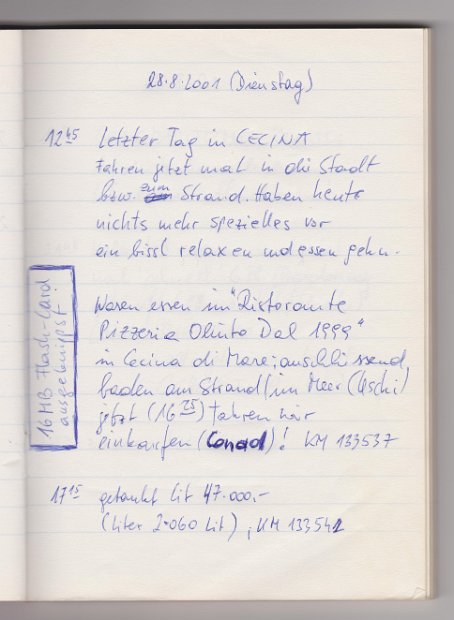 28.8.2001 (Dienstag)
12 45 Letzter Tag in CECINA
Fahren jetzt mal in die Stadt
bzw. zum Strand. Haben heute
nichts mehr spezielles vor
ein bissl relaxen und essen gehn.
16 MB Flash-Card
ausgepumpst!
Waren essen im "Ristorante
Pizzeria Olinto Dal 1999"
in Cecina di Mare; anschliessend
baden am Strand/im Meer (Uschi)
jetzt (16 25) fahren wir
einkaufen (Conad)! KM 133537
17 15 getankt Lit 47.000,-
(Liter 2.060 Lit), KM 133542